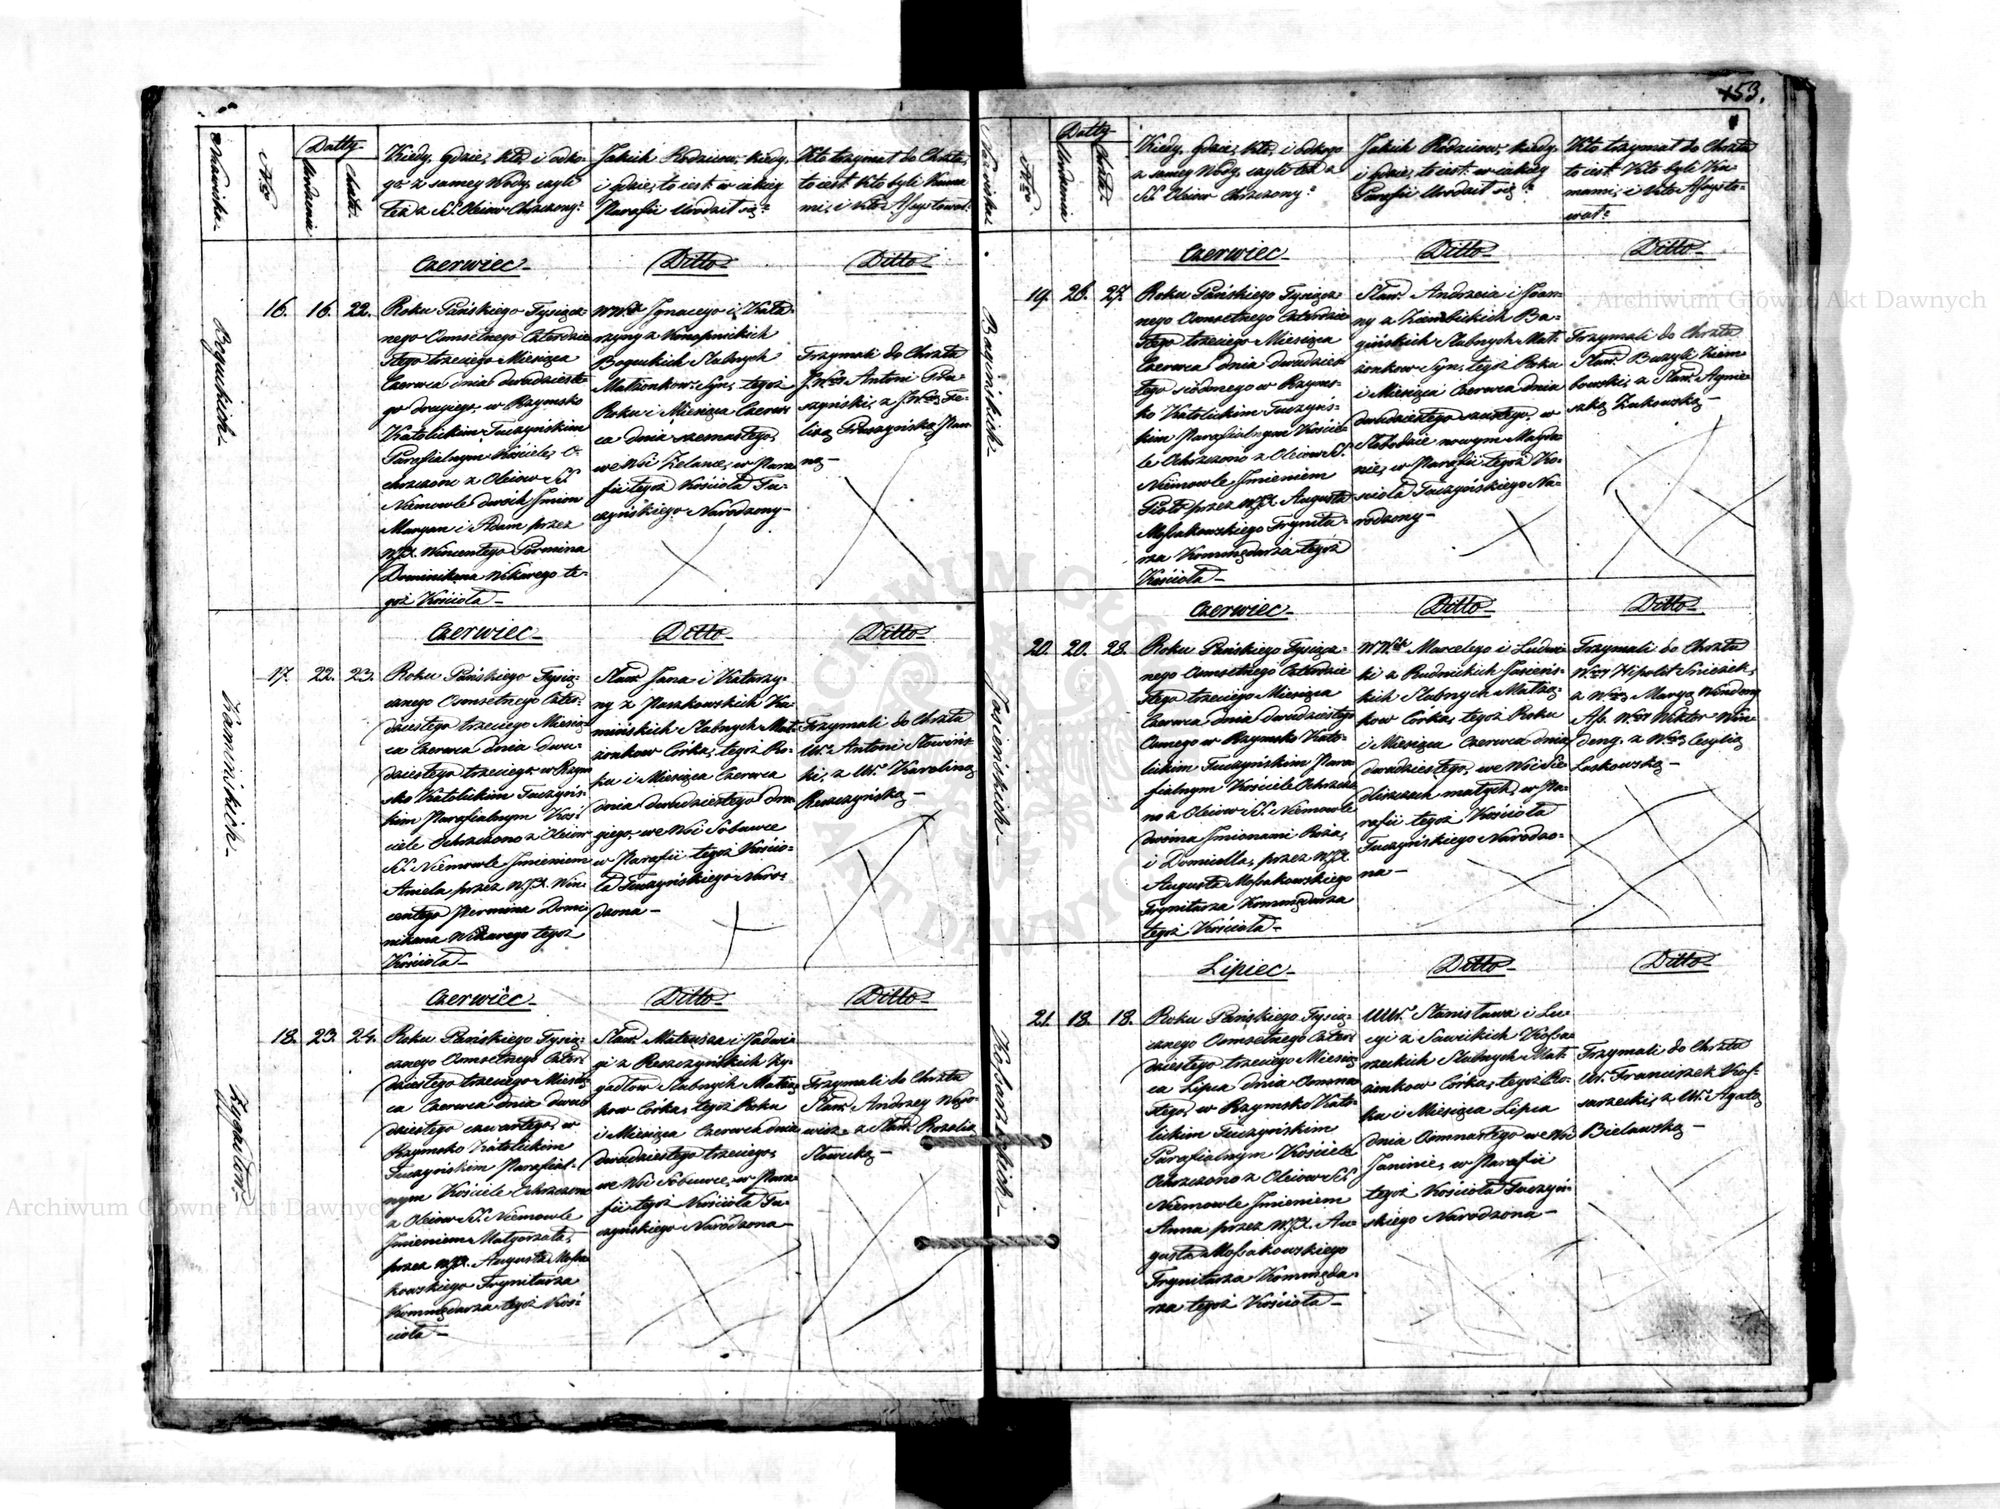 153.
Nazwiska
Nro
Datty
Urodzenia
Chrztu
Kiedy, Gdzie, Kto, i od ko-
go z samey Wody, czyli
też z SS. Oleiow Chrzczony?
Jakich Rodzicow, kiedy,
i gdzie, to iest w iakiey
Parafii Urodził się?
Kto trzymał do Chrztu,
to iest Kto byli Kuma
mi, i Kto Assystował
Boguckich
Czerwiec
Ditto
Ditto
16. 16. 22.
Roku Pańskiego Tysiącz-
nego Osmsetnego Czterdzie
stego trzeciego Miesiąca
Czerwca dnia dwudzieste-
go drugiego, w Rzymsko
Katolickim Tuczyńskim
Parafialnym Kościele, O-
chrzczono z Oleiow SS.
Niemowle dwoch Imion
Maryan i Adam przez
W.JX. Wincentego Permina
Dominikana Wikarego te-
goż Kościoła
Ignacego i Kata
rzyny z Konopnickich
Boguckich Slubnych
Malżonkow Syn, tegoż
Roku i Miesiąca Czerw
ca dnia szesnastego,
we Wsi Zelance, w Para
fii tegoż Kościoła Tu-
czyńskiego Narodzony
Trzymali do Chrztu
Antoni Pru-
szyński, z Fe-
lixą Pruszyńską Pan-
ną
Kamińskich
Czerwiec
Ditto
Ditto
17. 22. 23.
Roku Pańskiego Tysią-
cznego Osmsetnego Czter-
dziestego trzeciego Miesią-
ca Czerwca dnia dwu-
dziestego trzeciego w Rzym
sko Katolickim Tuczyńs-
kim Parafialnym Koś-
ciele Ochrzczono z Oleiow
SS. Niemowle Imieniem
Aniela przez W.JX. Win-
centego Permina Domi
nikana Wikarego tegoż
Kościoła
Sław. Jana i Katarzy-
ny z Paszkowskich Ka-
mińskich Slubnych Mał-
żonkow Corka, tegoż Ro-
ku i Miesiąca Czerwca
dnia dwudziestego dru
giego, we Wsi Sobuwce
w Parafii tegoż Kościo-
ła Tuczyńskiego Naro-
dzona
Trzymali do Chrztu
Ur. Antoni Słowińs-
ki, z Ur. Karoliną
Reszczyńską
Zygadłow
Czerwiec
Ditto
Ditto
18. 23. 24.
Roku Pańskiego Tysią-
cznego Osmsetnego Czter-
dziestego trzeciego Miesią
ca Czerwca dnia dwu
dziestego czwartego, w
Rzymsko Katolickim
Tuczyńskim Parafial-
nym Kościele Ochrzczono
z Oleiow SS. Niemowle
Imieniem Małgorzata,
przez W.JX. Augusta Mossa
kowskiego Trynitarza
Kommędarza tegoż Koś-
cioła
Sław. Mateusza i Jadwi
gi z Reszczyńskich Zy-
gadłow Slubnych Małżą
kow Corka, tegoż Roku
i Miesiąca Czerwca dnia
dwudziestego trzeciego,
we Wsi Sobuwce, w Para-
fii tegoż Kościoła Tu-
czyńskiego Narodzona
Trzymali do Chrztu
Sław. Andrzey
wicz z Sław. Rozalią
Nazwiska
Nro
Datty
Urodzenia
Chrztu
Kiedy, Gdzie, Kto, i od kogo
z samey Wody, czyli też z
SS. Oleiow Chrzczony?
Jakich Rodzicow, kiedy,
i gdzie, to iest w iakiey
Parafii Urodził się?
Kto trzymał do Chrztu
to iest Kto byli Ku
mami, i Kto Assysto-
wał?
Bagińskich
Czerwiec
Ditto
Ditto
19. 26. 27.
Roku Pańskiego Tysiącz-
nego Osmsetnego Czterdzie-
stego trzeciego Miesiąca
Czerwca dnia dwudzies-
tego siodmego w Rzyms-
ko Katolickim Tuczyńs-
kim Parafialnym Koście-
le Ochrzczono z Oleiow SS.
Niemowle Imieniem
Piotr przez W.JX. Augusta
Mossakowskiego Trynita-
rza Kommędarza tegoż
Kościoła
Sław. Andrzeia i Joan-
ny z Ziembickich Ba-
gińskich Slubnych Mał-
żonkow Syn, tegoż Roku
i Miesiąca Czerwca dnia
dwudziestego szostego, w
Słobodzie nowym Magda
nie, w Parafii tegoż Ko-
ścioła Tuczyńskiego Na-
rodzony
Trzymali do Chrztu
Sław. Bazyli Ziem-
bowski, z Sław. Agnie
szką Zukowską
Jasieńskich
Czerwiec
Ditto
Ditto
20. 20. 28.
Roku Pańskiego Tysiącz-
nego Osmsetnego Czterdzie
stego trzeciego Miesiąca
Czerwca dnia dwudziestego
Osmego w Rzymsko Kato-
lickim Tuczyńskim Para
fialnym Kościele Ochrzczo
no z Oleiow SS. Niemowle
dwoma Imionami Roża,
i Domicella, przez W.JX.
Augusta Mossakowskiego
Trynitarza Kommędarza
tegoż Kościoła
Marcelego i Ludwi
ki z Rudnickich Jasieńs-
kich Slubnych Małżą-
kow Corka, tegoż Roku
i Miesiąca Czerwca dnia
dwudziestego, we Wsi Sie
dliszczach małych, w Pa-
rafii tegoż Kościoła
Tuczyńskiego Narodzo-
na
Trzymali do Chrztu
Hipolit
z Maryą
Ass. Wiktor Win-
deng z Cecylią
Laskowską
Kossarzeckich
Lipiec
Ditto
Ditto
21. 18. 18.
Roku Pańskiego Tysią-
cznego Osmsetnego Czter-
dziestego trzeciego Miesią
ca Lipca dnia Osmna
stego, w Rzymsko Kato-
lickim Tuczyńskim
Parafialnym Kościele
Ochrzczono z Oleiow SS.
Niemowle Imieniem
Anna przez W.JX. Au-
gusta Mossakowskiego
Trynitarza Kommęda-
rza tegoż Kościoła
UUr. Stanisława i Lu-
cyi z Sawickich Kossa-
rzeckich Slubnych Mał-
żonkow Corka, tegoż Ro-
ku i Miesiąca Lipca
dnia Osmnastego we Wsi
Janinie, w Parafii
tegoż Kościoła Tuczyń-
skiego Narodzona
Trzymali do Chrztu
Ur. Franciszek Kos-
sarzecki, z Ur. Agatą
Bielawską
Archiwum Główne Akt Dawnych
Archiwum Główne Akt Dawnych
ARCHIWUM GŁÓWNE AKT DAWNYCH